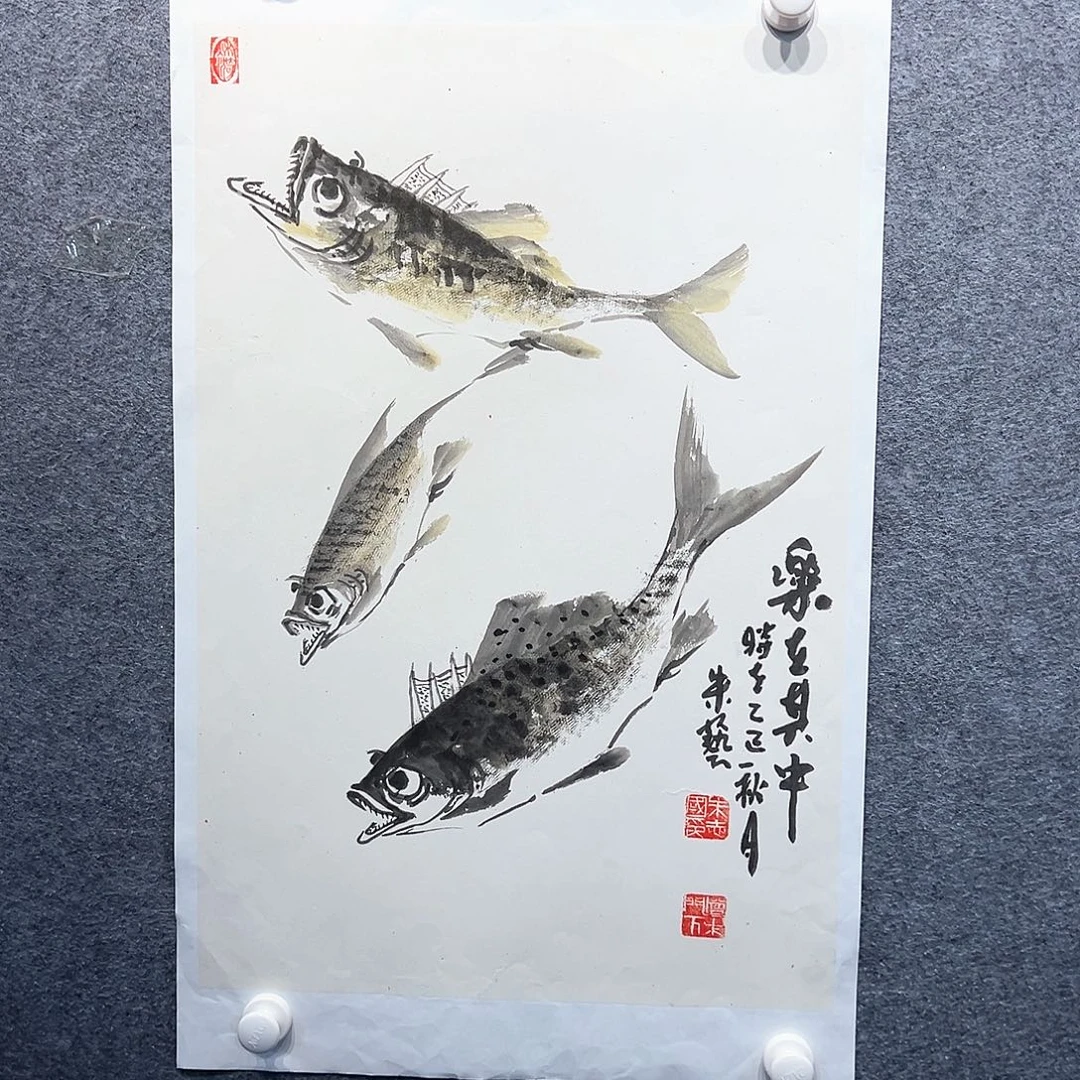 樂在其中
時在乙巳秋月
朱藝
朱志國印